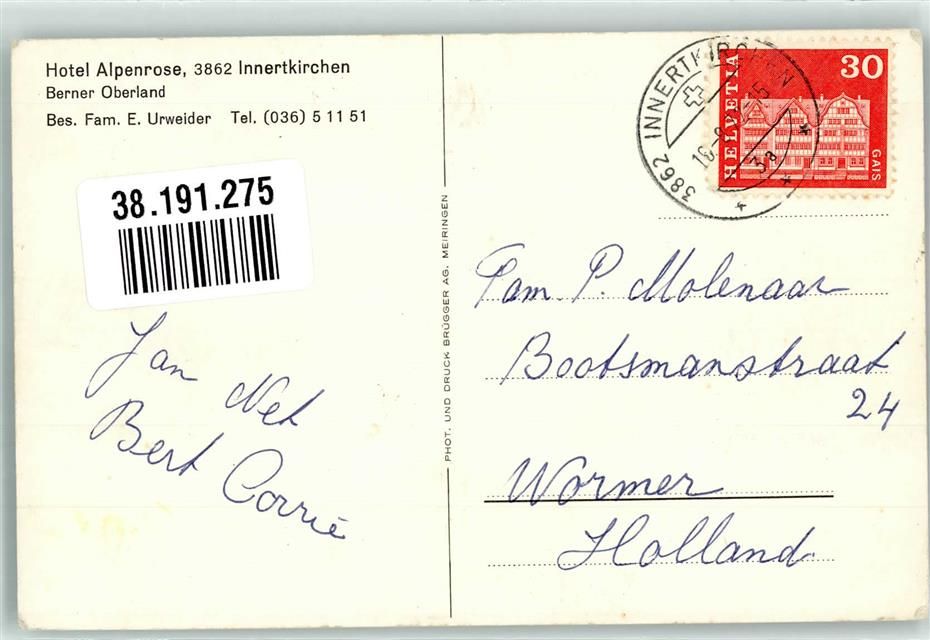 Hotel Alpenrose, 3862 Innertkirchen
Berner Oberland
Bes. Fam. E. Urweider Tel. (036) 5 11 51
38.191.275
Jan Net
Bert Corrie
PHOT. UND DRUCK BRÜGGER AG. MEIRINGEN
3862 INNERTKIRCHEN
3a
HELVETIA
30
GAIS
Fam. P. Molenaar
Bootsmanstraat
24
Wormer
Holland